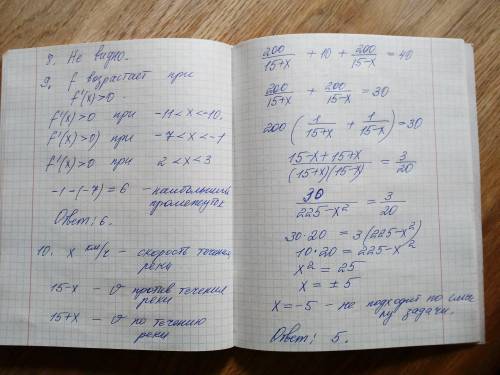 8. Не видно.
9. f возрастает при
f'(x)>0.
f'(x)>0 при -11<x<-10.
f'(x)>0) при -7<x<-1
f'(x)>0 при 2<x<3
-1-(-7)=6 - наибольший
промежуток
Ответ: 6.
10. x км/ч - скорость течения
реки
15-x - v против течения
реки
15+x - v по течению
реки
200/(15+x) + 10 + 200/(15-x) = 40
200/(15+x) + 200/(15-x) = 30
200(1/(15+x) + 1/(15-x)) = 30
(15-x+15+x)/((15+x)(15-x)) = 3/20
30/(225-x²) = 3/20
30·20 = 3(225-x²)
10·20 = 225-x²
x² = 25
x = ±5
x=-5 - не подходит по смыс
лу задачи.
Ответ: 5.